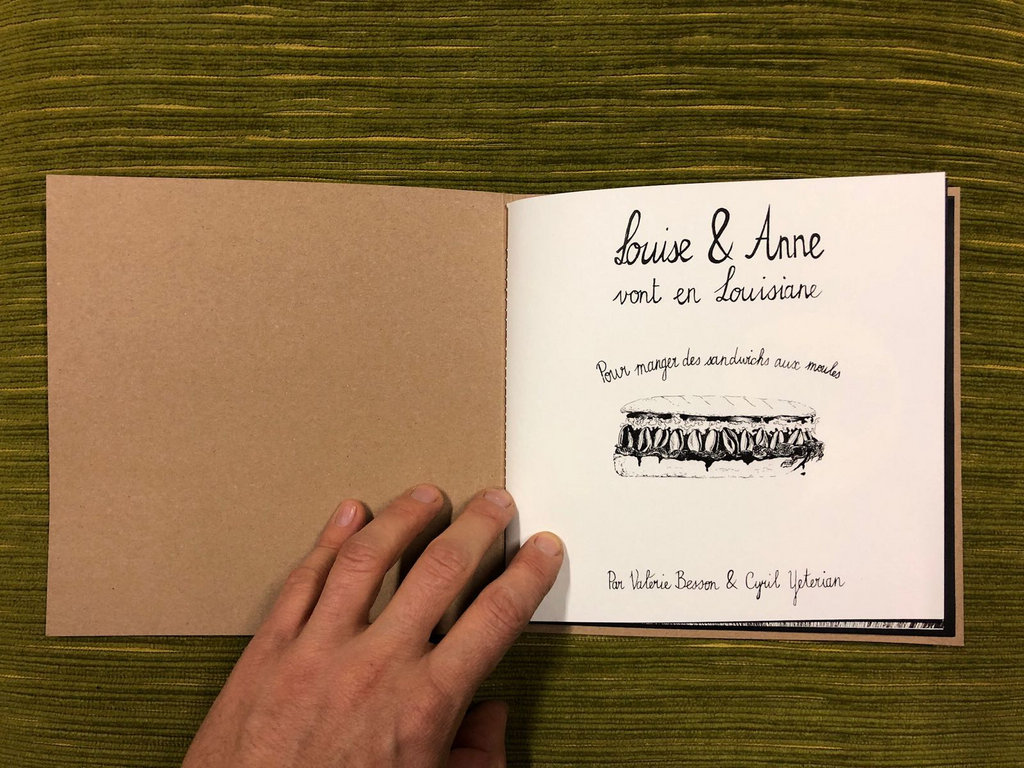 Louise & Anne
vont en Louisiane
Pour manger des sandwichs aux moules
Par Valérie Besson & Cyril Yeterian